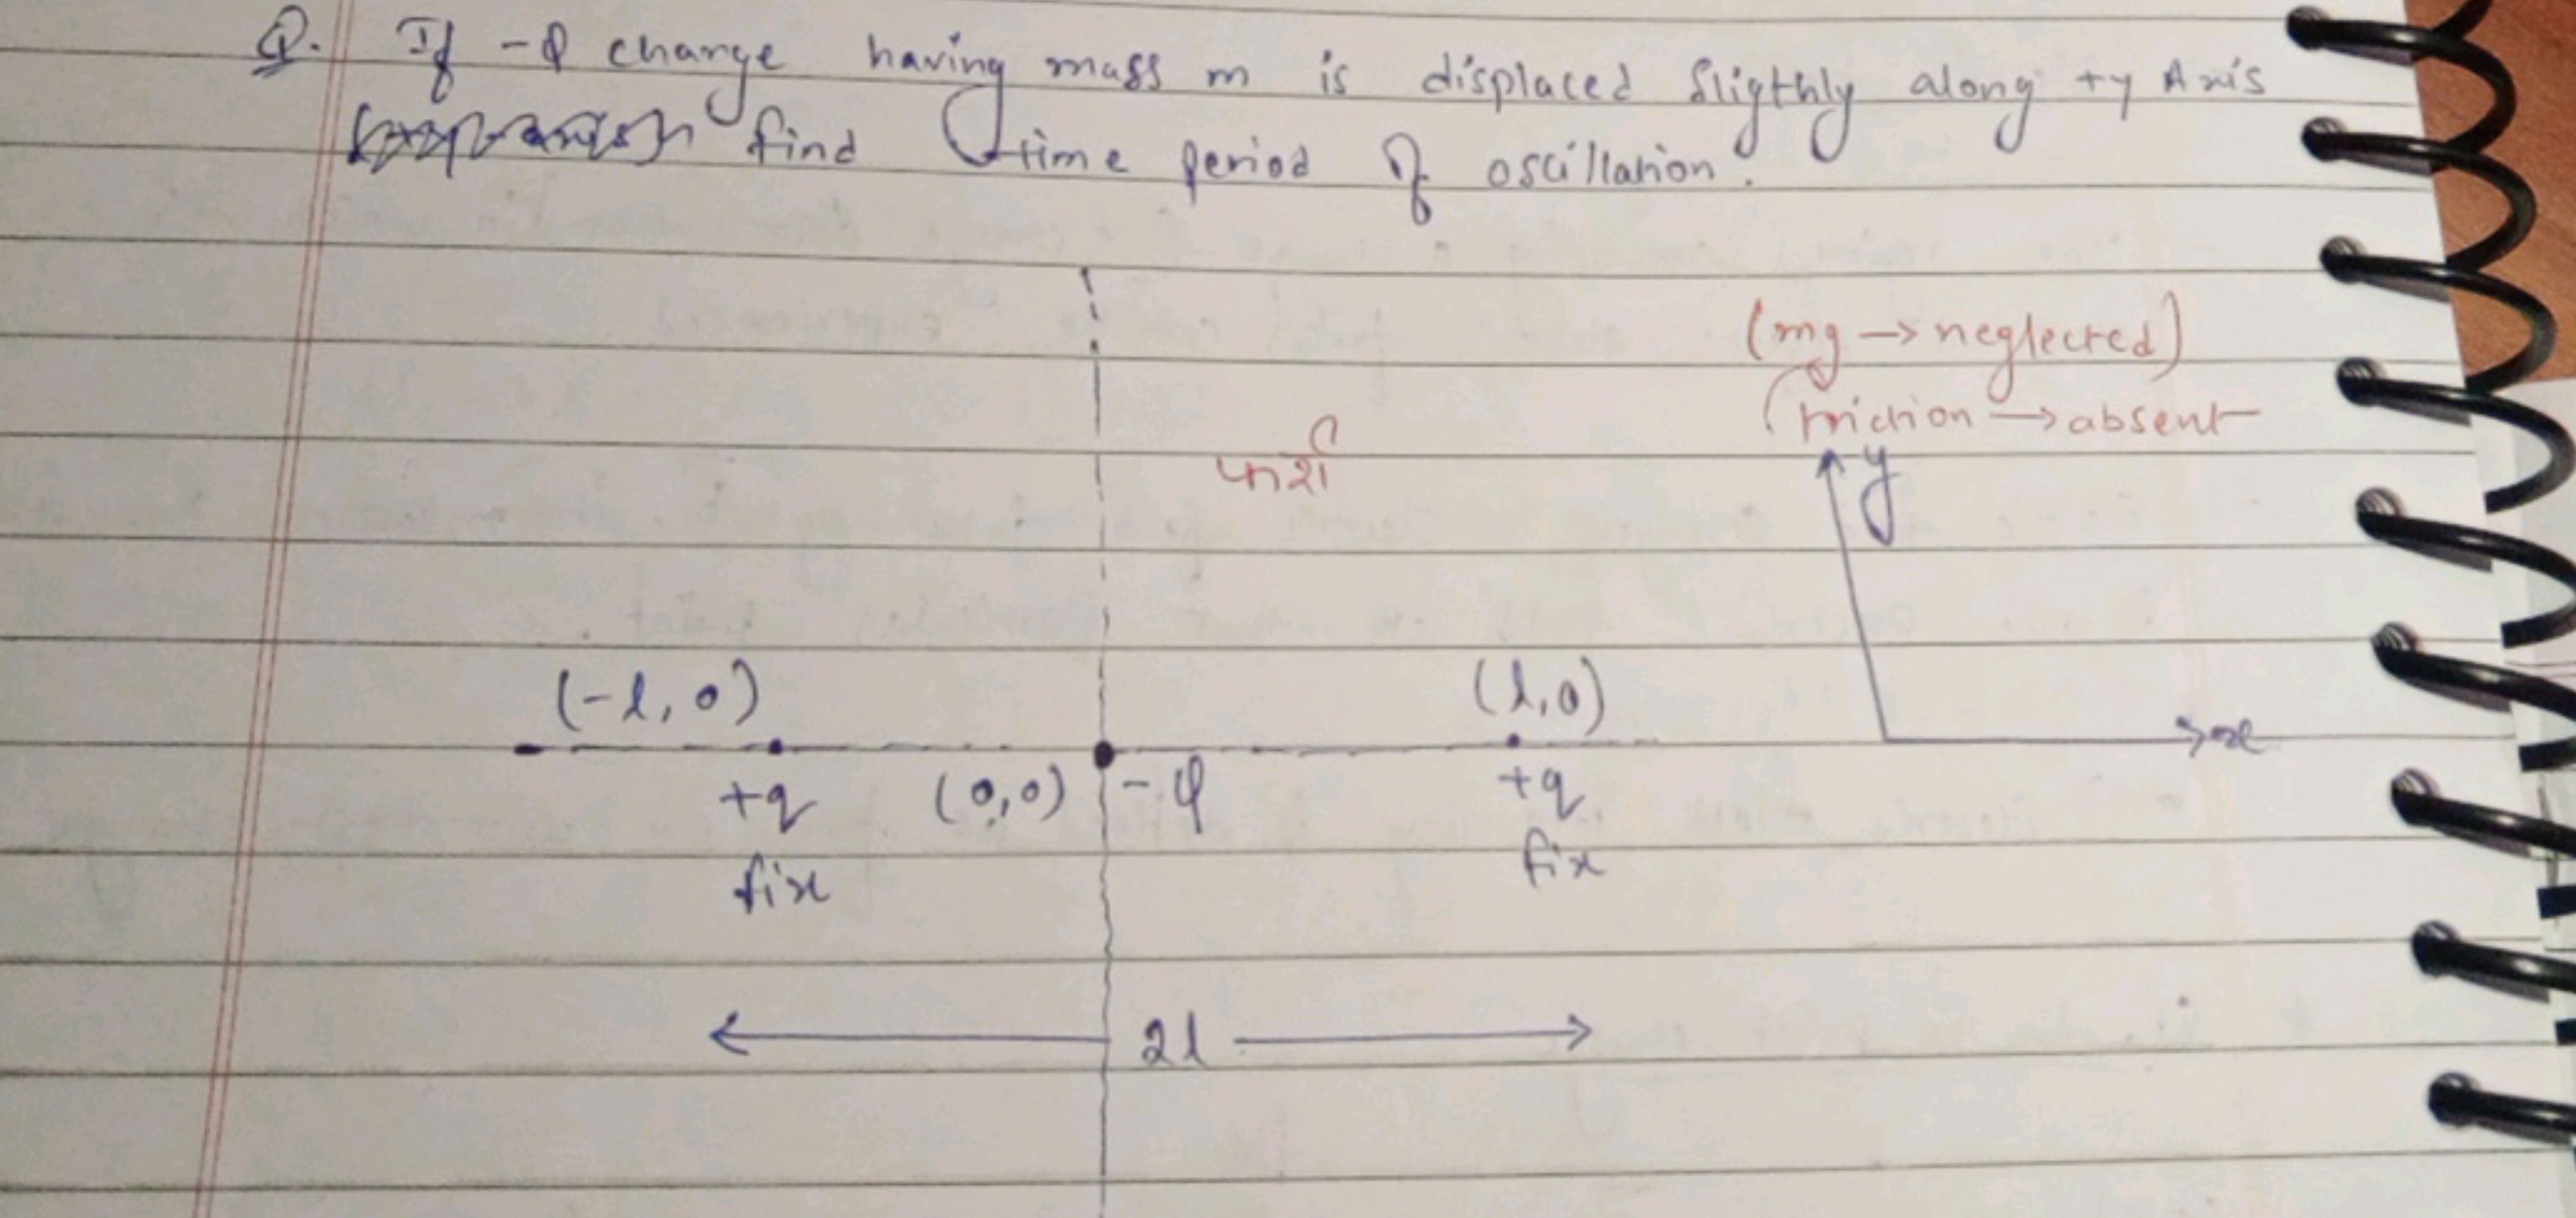 Q. If -Q change having mass m is displaced Sligthly along +y Axis
find time period of oscillation.
(mg → neglected)
friction → absent
फर्श
y
(-l, 0)
(l,0)
x
+q
(0,0)
-Q
+q
fix
fix
2l